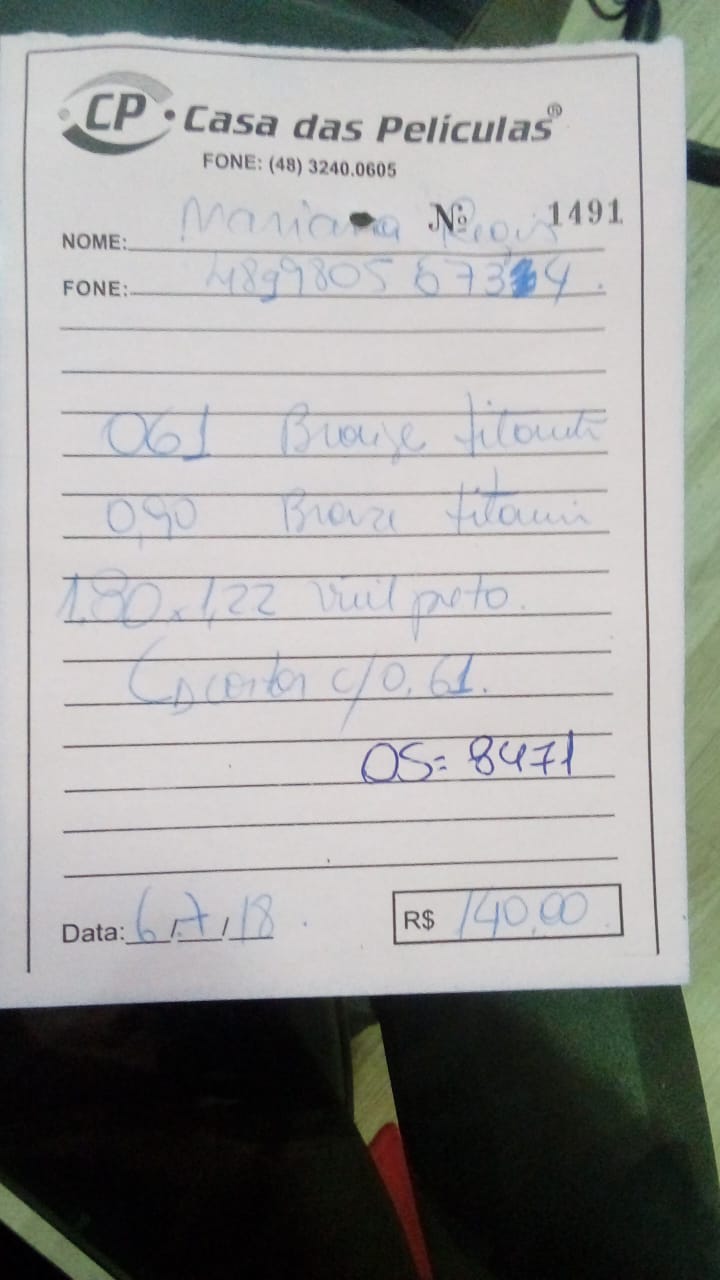 CP • Casa das Películas®
FONE: (48) 3240.0605
Nº 1491
NOME: Mariana Regis
FONE: 48998056734.
061 Bronze
0,90 Bronze
1.80 x 1,22 Vinil preto.
cortar c/ 0,61.
OS= 8471
Data: 6/7/18. R$ 140,00